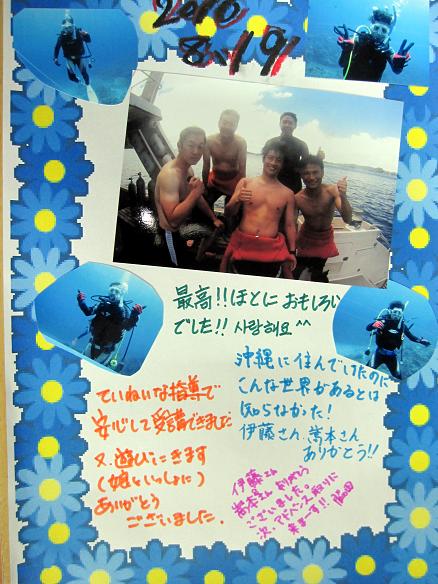 2010
8/19
最高!!ほとにおもしろい
でした!! 사랑해요 ^^
沖縄に住んでいたのに
こんな世界があるとは
知らなかった!
伊藤さん 嵩本さん
ありがとう!!
ていねいな指導で
安心して受講できました
又、遊びにきます
(娘といっしょに)
ありがとう
ございました.
伊藤さん
嵩本さん ありがとう
ございました。
次、アドバンス取りに
来ます!!